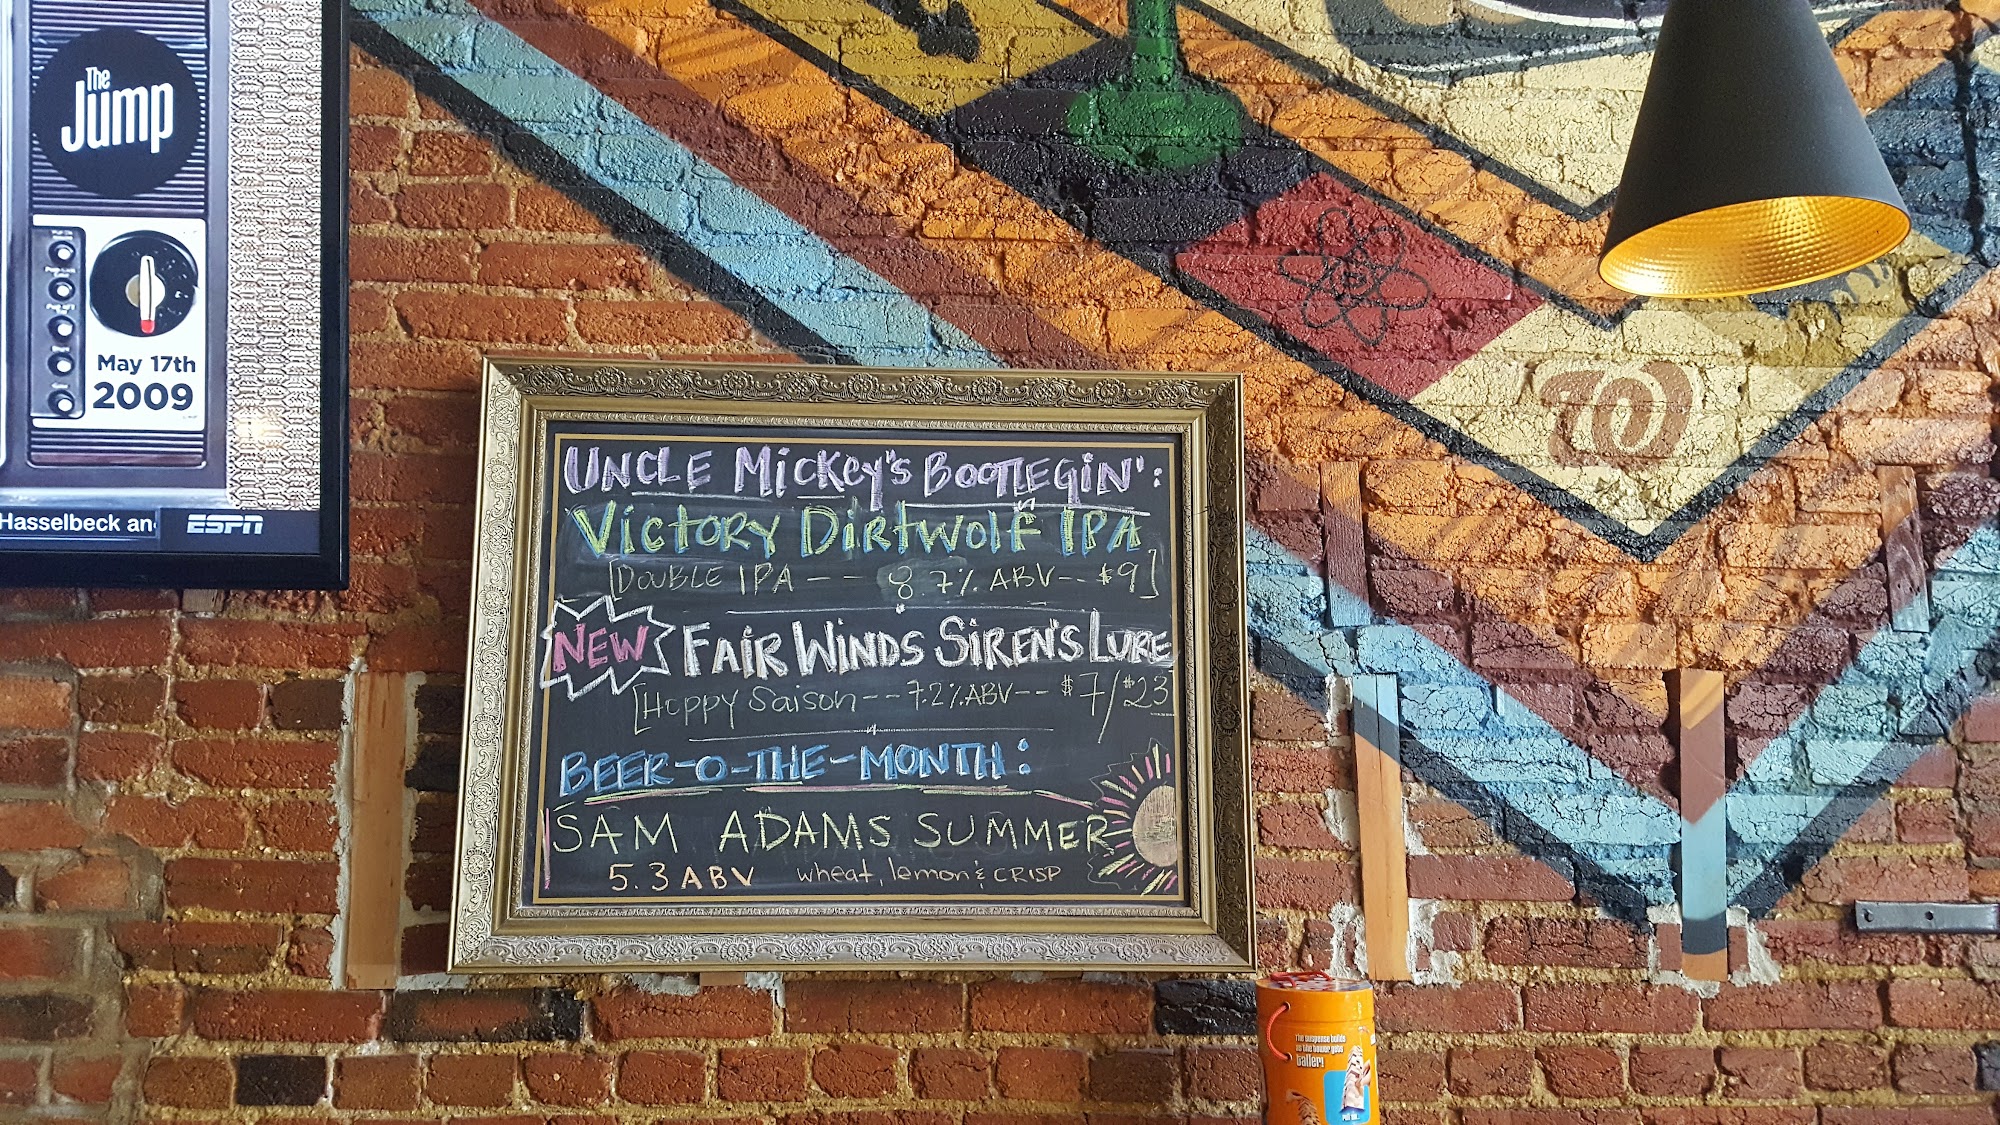 The
Jump
May 17th
2009
Hasselbeck an
ESPN
UNCLE MICKEY'S BOOTLEGIN':
VICTORY DIRTWOLF IPA
[DOUBLE IPA -- -- 8.7% ABV -- $9]
NEW FAIR WINDS SIREN'S LURE
[Hoppy Saison -- 7.2% ABV -- $7/$23
BEER-O-THE-MONTH:
SAM ADAMS SUMMER
5.3 ABV wheat, lemon & CRISP
W
The suspense builds
as the tower gets
taller!